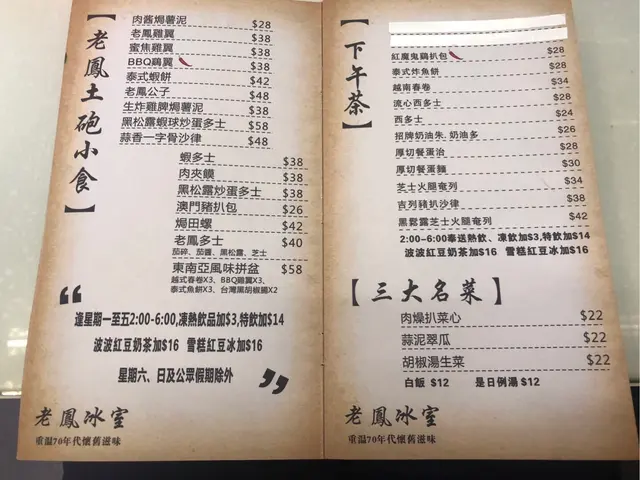 【老鳳土砲小食】
肉酱焗薯泥 $28
老鳳雞翼 $38
蜜焦雞翼 $38
BBQ鷄翼 $38
泰式蝦餅 $42
老鳳公子 $48
生炸雞脾焗薯泥 $38
黑松露蝦球炒蛋多士 $58
蒜香一字骨沙律 $48
蝦多士 $38
肉夾饃 $38
黑松露炒蛋多士 $38
澳門豬扒包 $26
焗田螺 $42
老鳳多士 $40
茄碎、茄醬、黑松露、芝士
東南亞風味拼盆 $58
越式春卷X3、BBQ雞翼X3、
泰式魚餅X3、台灣黑胡椒腸X2
“
逢星期一至五2:00-6:00,凍熱飲品加$3,特飲加$14
波波紅豆奶茶加$16 雪糕紅豆冰加$16
星期六、日及公眾假期除外
”
老鳳冰室
重温70年代懷舊滋味
【下午茶】
$28
紅魔鬼鷄扒包 $28
泰式炸魚餅 $28
越南春卷 $34
流心西多士 $28
西多士 $24
招牌奶油朱.奶油多 $26
厚切餐蛋治 $28
厚切餐蛋麵 $30
芝士火腿奄列 $34
吉列豬扒沙律 $38
黑鬆露芝士火腿奄列 $42
2:00-6:00奉送熱飲、凍飲加$3,特飲加$14
波波紅豆奶茶加$16 雪糕紅豆冰加$16
【三大名菜】
肉燥扒菜心 $22
蒜泥翠瓜 $22
胡椒湯生菜 $22
白飯 $12 是日例湯 $12
老鳳冰室
重温70年代懷舊滋味